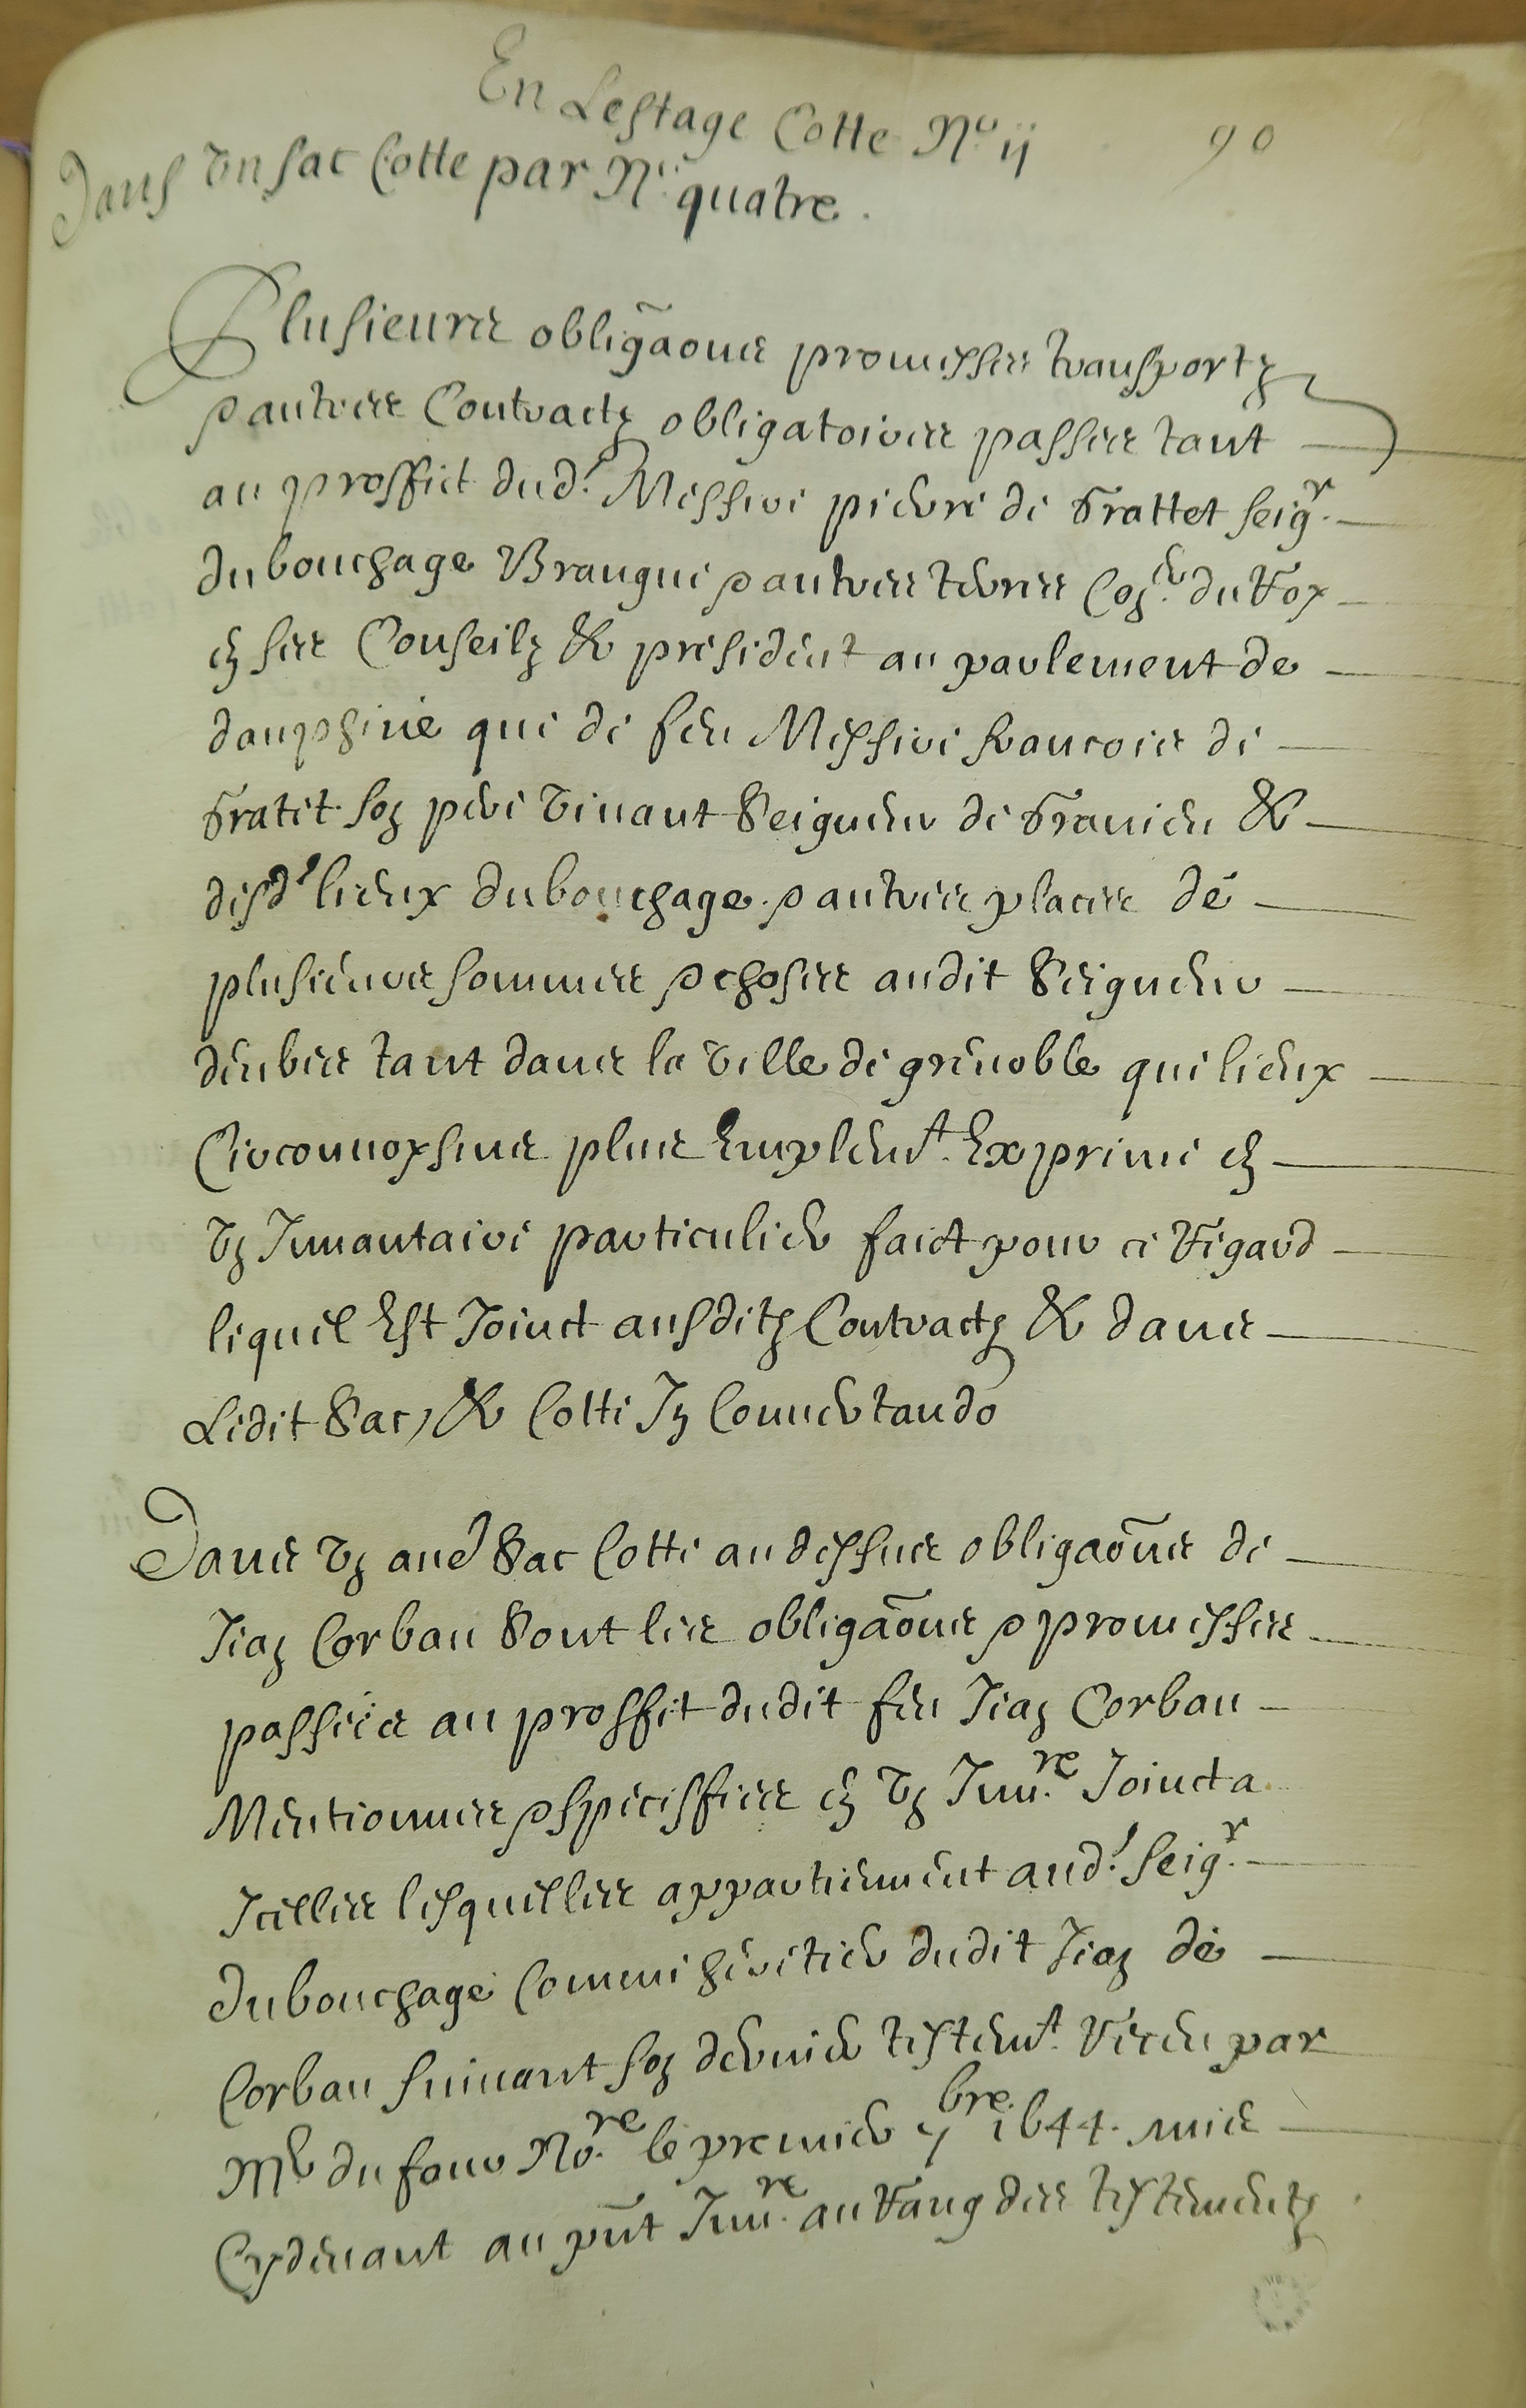 En Lestage Cotte N.o ij
90
Dans Un sac Cotte par N.o quatre.
Plusieurs obligãons promesses transportz
& autres Contractz obligatoires passes tant
au proffict dud.t Messire pierre de Grattet seig.r
du bouchage Brangue & autres terres Con.er du Roy
en ses Conseilz & president au parlement de
dauphine que de feu Messire francois de
Gratet son pere vivant Seigneur de Granieu &
desd.t lieux du bouchage & autres places de
plusieurs sommes & choses audit Seigneur
deubes tant dans la ville de grenoble que lieux
Circonvoysins plus Emplem.t Exprime en
Un Inuantaire particulier faict pour ce Regard
lequel Est Joinct ausditz Contractz & dans
Ledit Sac, & Cotte In Conuertando
Dans Un aud Sac Cotte au dessus obligaõns de
Jean Corbau Sont les obligãons & promesses
passées au proffit dudit feu Jean Corbau
Mentionnes & speciffies en Un Inu.re Joinct a
Icelles lesquelles appartiennent aud.t seig.r
du bouchage Comme heritier dudit Jean de
Corbau suiuant son dernier testem.t Receu par
M.e du four No.re le premier 7.bre 1644. mis
Cy deuant au pñt Inu.re au Rang des testementz